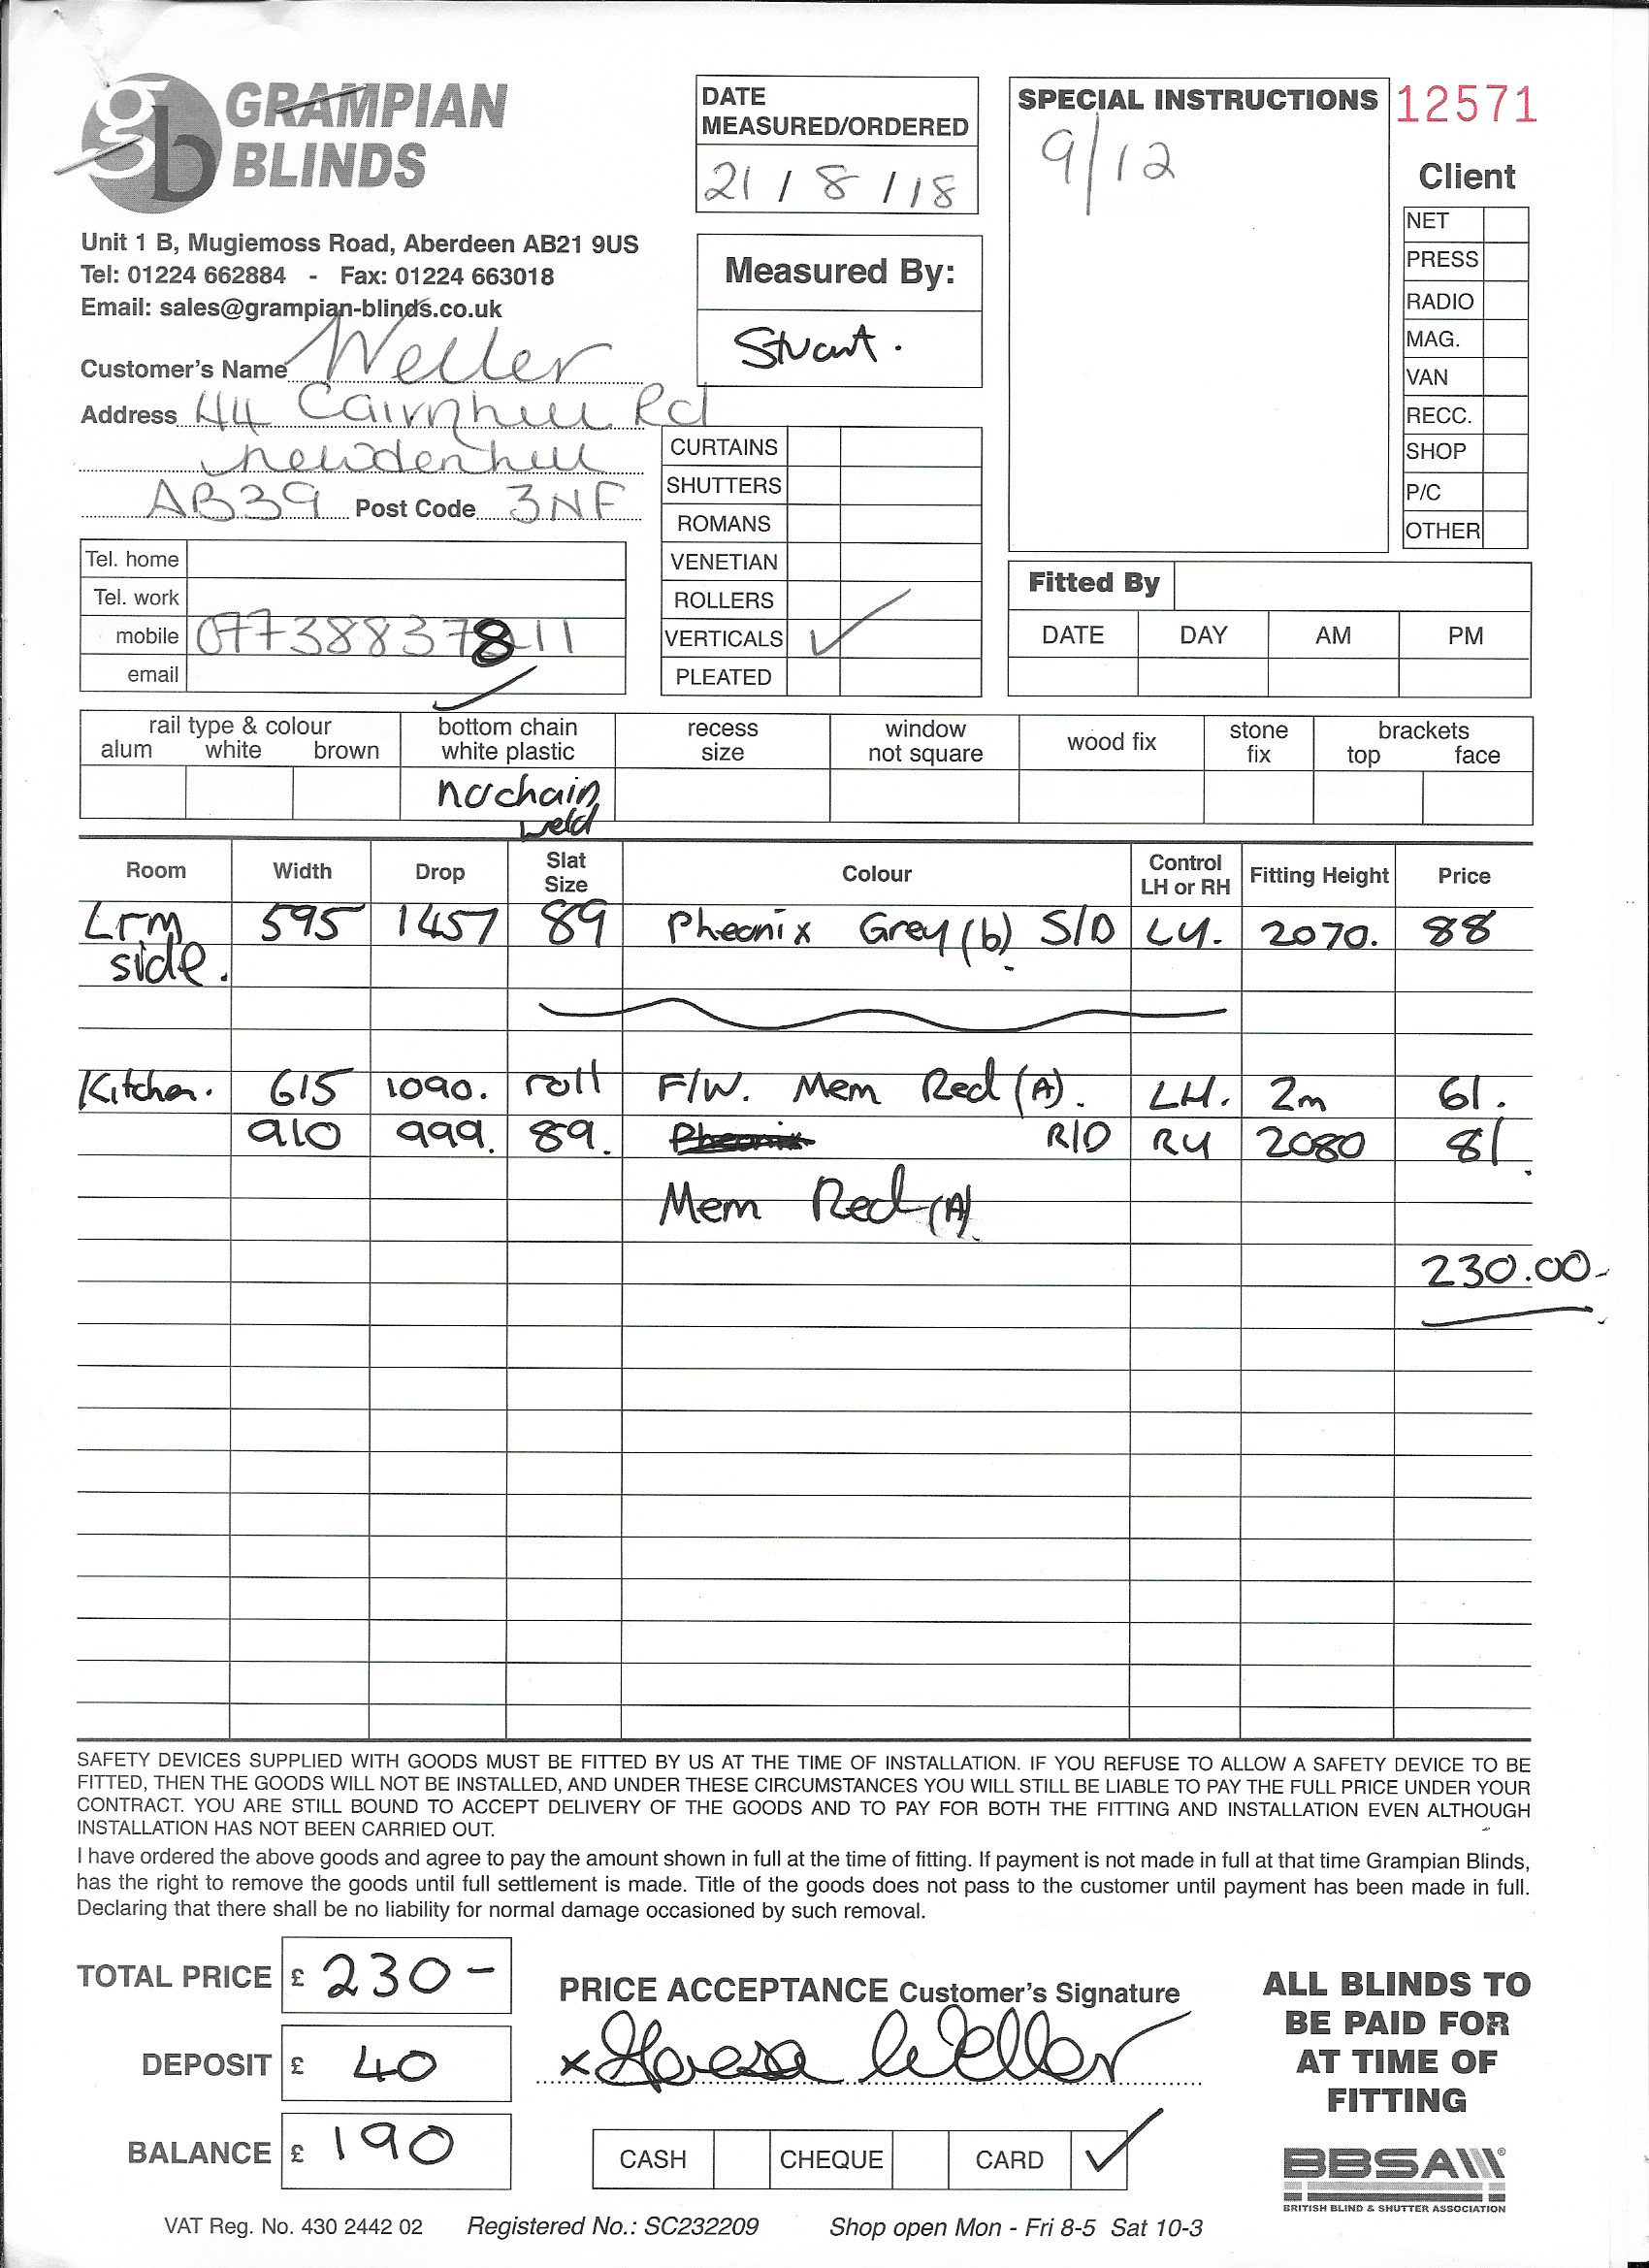 GRAMPIAN
BLINDS
Unit 1 B, Mugiemoss Road, Aberdeen AB21 9US
Tel: 01224 662884 - Fax: 01224 663018
Email: sales@grampian-blinds.co.uk
DATE
MEASURED/ORDERED
21 / 8 / 18
Measured By:
Stuart.
SPECIAL INSTRUCTIONS
9/12
12571
Client
NET
PRESS
RADIO
MAG.
VAN
RECC.
SHOP
P/C
OTHER
Customer's Name Weller
Address 44 Cairnhill Rd
Newdenhill
AB39 Post Code 3NF
Tel. home
Tel. work
mobile 07738837811
email
CURTAINS
SHUTTERS
ROMANS
VENETIAN
ROLLERS
VERTICALS ✓
PLEATED
Fitted By
DATE DAY AM PM
rail type & colour
alum white brown
bottom chain
white plastic
recess
size
window
not square
wood fix
stone
fix
brackets
top face
no chain
weld
Room Width Drop Slat Size Colour Control LH or RH Fitting Height Price
Lrm 595 1457 89 Pheonix Grey (b) S/D LH. 2070. 88
side.
Kitchen. 615 1090. roll F/W. Mem Red (A). LH. 2m 61.
910 999. 89. Pheonix R/D RH 2080 81.
Mem Red (A)
230.00-
SAFETY DEVICES SUPPLIED WITH GOODS MUST BE FITTED BY US AT THE TIME OF INSTALLATION. IF YOU REFUSE TO ALLOW A SAFETY DEVICE TO BE
FITTED, THEN THE GOODS WILL NOT BE INSTALLED, AND UNDER THESE CIRCUMSTANCES YOU WILL STILL BE LIABLE TO PAY THE FULL PRICE UNDER YOUR
CONTRACT. YOU ARE STILL BOUND TO ACCEPT DELIVERY OF THE GOODS AND TO PAY FOR BOTH THE FITTING AND INSTALLATION EVEN ALTHOUGH
INSTALLATION HAS NOT BEEN CARRIED OUT.
I have ordered the above goods and agree to pay the amount shown in full at the time of fitting. If payment is not made in full at that time Grampian Blinds,
has the right to remove the goods until full settlement is made. Title of the goods does not pass to the customer until payment has been made in full.
Declaring that there shall be no liability for normal damage occasioned by such removal.
TOTAL PRICE £ 230-
DEPOSIT £ 40
BALANCE £ 190
PRICE ACCEPTANCE Customer's Signature
x Theresa Weller
CASH CHEQUE CARD ✓
ALL BLINDS TO
BE PAID FOR
AT TIME OF
FITTING
BBSA
BRITISH BLIND & SHUTTER ASSOCIATION
VAT Reg. No. 430 2442 02 Registered No.: SC232209 Shop open Mon - Fri 8-5 Sat 10-3